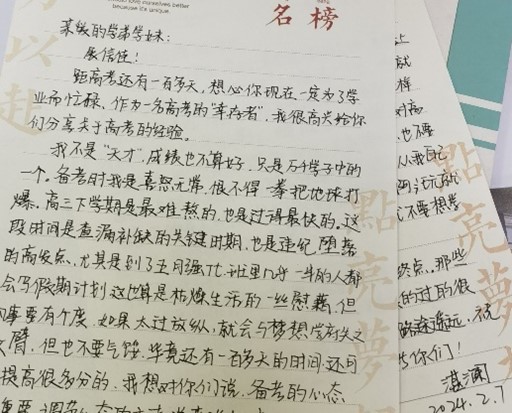 because it's unique.
名榜
亲爱的学弟学妹：
展信佳！
距高考还有一百多天，想必你现在一定为了学
业而忙碌，作为一名高考的"幸存者"，我很高兴给你
们分享关于高考的经验。
我不是"天才"，成绩也不算好，只是万千学子中的
一个。备考时我是喜怒无常，恨不得一拳把地球打
爆。高三下学期是最难熬的，也是过得最快的，这
段时间是查漏补缺的关键时期，也是违纪，堕落
的高发点，尤其是到了五月强化，班里几乎一半的人都
会写假期计划这也算是枯燥生活的一丝慰藉，但
事要有个度，如果太过放纵，就会与梦想学府失之
臂，但也不要气馁，毕竟还有一百多天的时间，还可
提高很多分的，我想对你们说，备考的心态
重要
就
对高
也不要
不要想学
终点，那些
的过的很
路途遥远，
与你们！
湛澜
2024.2.7
點亮夢
點亮夢
以